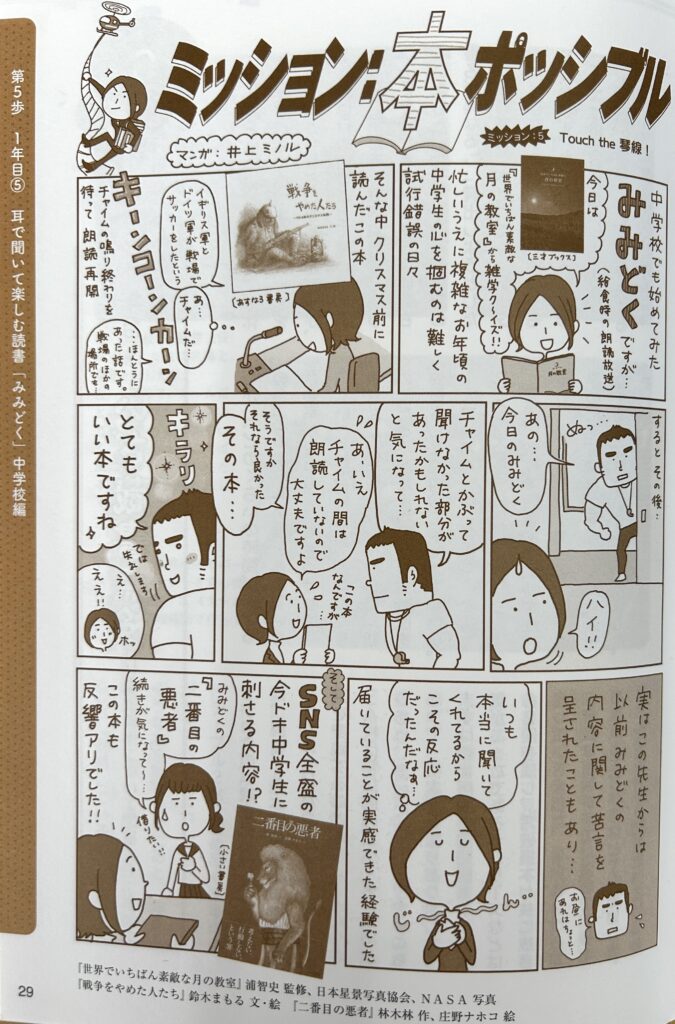 ミッション:本ポッシブル
マンガ:井上ミノル
ミッション:5
Touch the 琴線!
中学校でも始めてみた
みみどくですが…
(給食時の朗読放送)
今日は
『世界でいちばん素敵な
月の教室』から雑学ク〜イズ!!
[三才ブックス]
月の教室
忙しいうえに複雑なお年頃の
中学生の心を掴むのは難しく
試行錯誤の日々
そんな中クリスマス前に
読んだこの本
戦争を
やめた人たち
[あすなろ書房]
イギリス軍と
ドイツ軍が戦場で
サッカーをしたという
あ…
チャイムだ…
キーンコーンカーン
チャイムの鳴り終わりを
待って朗読再開
…ほんとうに
あった話です。
戦場のほかの
場所でも…
するとその後…
ぬっ…
あの…
今日のみみどく
ハイ!!
チャイムとかぶって
聞けなかった部分が
あったかもしれない
と気になって…
あ、いえ
チャイムの間は
朗読していないので
大丈夫ですよ
この本
なんですが
そうですか
それなら良かった
その本…
キラリ
とても
いい本ですね
では
失礼します
え…
ええ!!
ホッ
実はこの先生からは
以前みみどくの
内容に関して苦言を
呈されたこともあり…
お昼に
あれはちょっと…
いつも
本当に聞いて
くれてるから
こその反応
だったんだなぁ…
じ〜ん
届いていることが実感できた経験でした
そして
SNS全盛の
今ドキ中学生に
刺さる内容!?
二番目の悪者
考えない、
行動しない、
という罪
[小さい書房]
みみどくの
『二番目の
悪者』
続きが気になって〜…
借りたい…
この本も
反響アリでした!!
『世界でいちばん素敵な月の教室』浦智史 監修、日本星景写真協会、NASA 写真
『戦争をやめた人たち』鈴木まもる 文・絵 『二番目の悪者』林木林 作、庄野ナホコ 絵
第5歩 1年目⑤ 耳で聞いて楽しむ読書「みみどく」中学校編
29